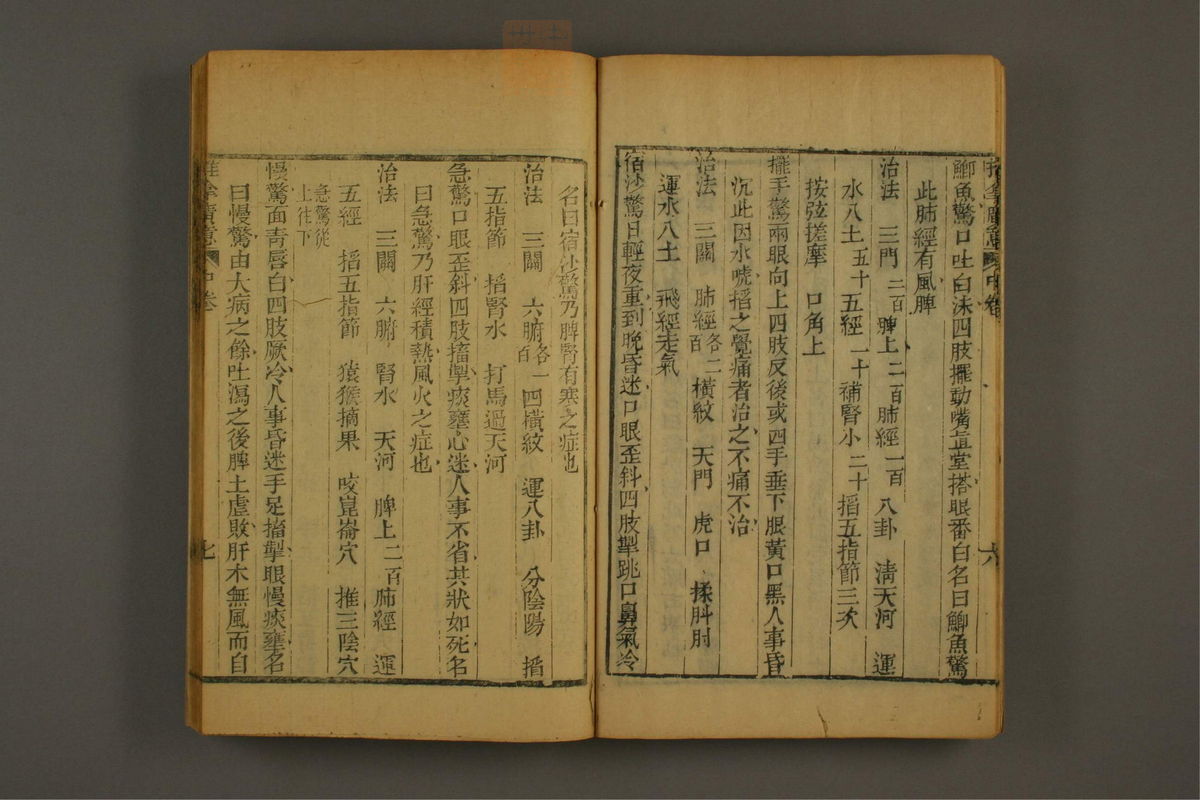 推拿廣意 中卷 六
鯽魚驚口吐白沫四肢擺動嘴直掌搭眼番白名曰鯽魚驚
此肺經有風脾
治法 三門二百 脾上二百 肺經一百 八卦 清天河 運
水八土五十 五經二十 補腎小二十 掐五指節三次
按弦搓摩 口角上
擺手驚兩眼向上四肢反後或四手垂下眼黃口黑人事昏
沉此因水唬掐之覺痛者治之不痛不治
治法 三關 肺經各二百 橫紋 天門 虎口 揉肘肘
運水八土 飛經走氣
宿沙驚日輕夜重到晚昏迷口眼歪斜四肢掣跳口鼻氣冷
名曰宿沙驚乃脾腎有寒之症也
治法 三關 六腑各一百 四橫紋 運八卦 分陰陽 掐
五指節 掐腎水 打馬過天河
急驚口眼歪斜四肢搐掣痰壅心迷人事不省其狀如死名
曰急驚乃肝經積熱風火之症也
治法 三關 六腑 腎水 天河 脾上二百 肺經 運
五經 掐五指節 猿猴摘果 咬崑崙穴 推三陰穴
急驚從上往下
慢驚面青唇白四肢厥冷人事昏迷手足搐掣眼慢痰壅名
曰慢驚由大病之餘吐瀉之後脾土虛敗肝木無風而自
推拿廣意 中卷 七